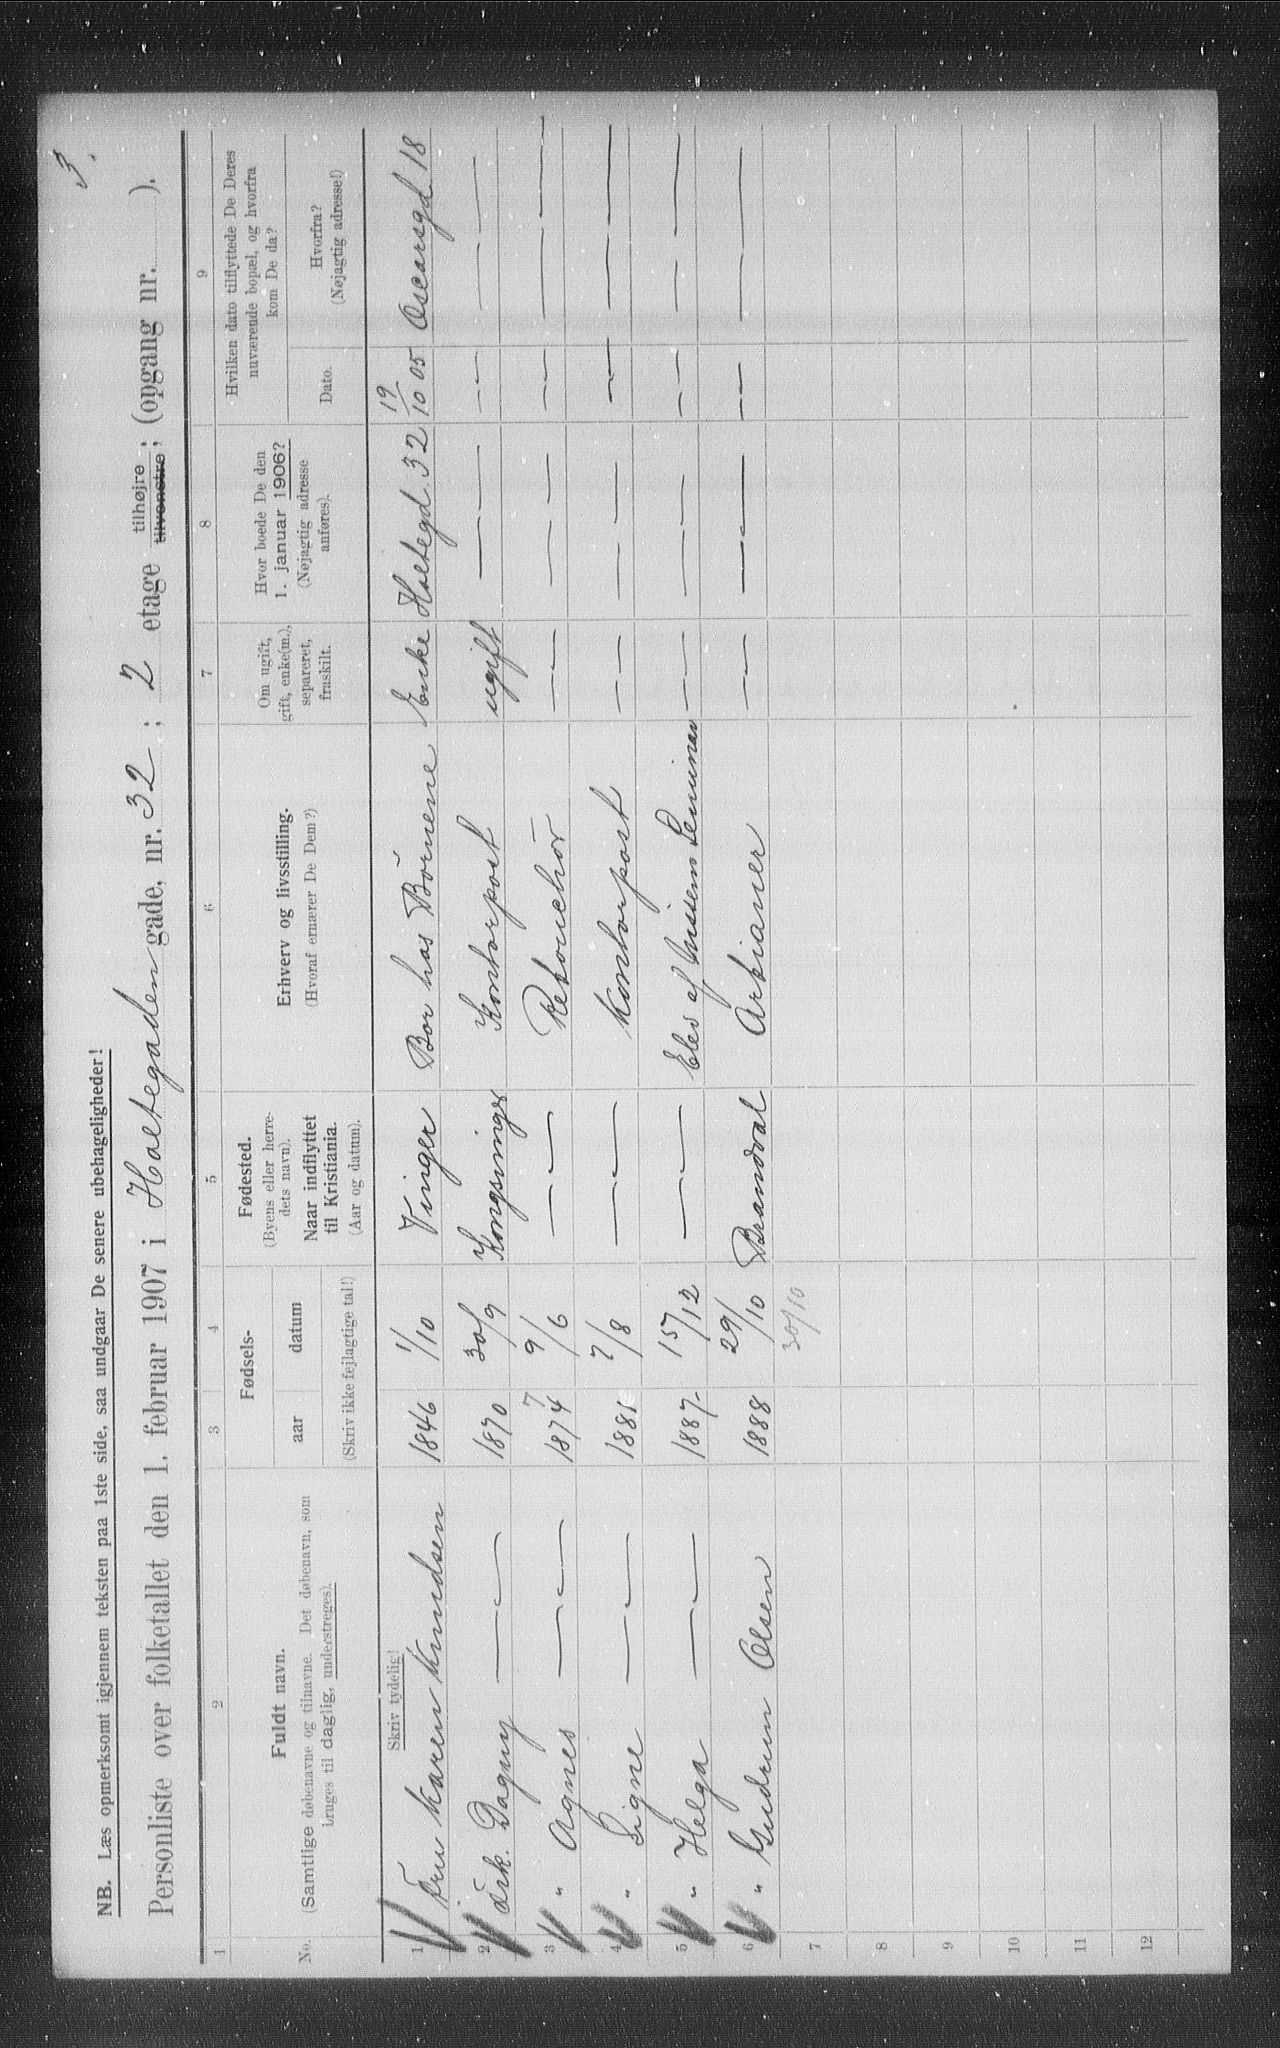 3.
NB. Læs opmerksomt igjennem teksten paa 1ste side, saa undgaar De senere ubehageligheder!
Personliste over folketallet den 1. februar 1907 i Holtegaden gade, nr. 32 ; 2 etage tilhøjre tilvenstre ; (opgang nr. ).
1 2 3 4 5 6 7 8 9
No.
Fuldt navn.
(Samtlige døbenavne og tilnavne. Det døbenavn, som
bruges til daglig, understreges).
Skriv tydelig!
Fødsels-
aar
datum
(Skriv ikke fejlagtige tal!)
Fødested.
(Byens eller herre-
dets navn).
Naar indflyttet
til Kristiania.
(Aar og datum).
Erhverv og livsstilling.
(Hvoraf ernærer De Dem?)
Om ugift,
gift, enke(m.),
separeret,
fraskilt.
Hvor boede De den
1. januar 1906?
(Nøjagtig adresse
anføres).
Hvilken dato tilflyttede De Deres
nuværende bopæl, og hvorfra
kom De da?
Dato.
Hvorfra?
(Nøjagtig adresse!)
1 Fru Karen Knudsen 1846 1/10 Vinger Bor hos Børnene Enke Holtegd. 32 19/10 05 Oscarsgd. 18
2 Frk. Dagny — — 1870 30/9 Kongsvinger Kontorpost ugift — — — — — —
3 „ Agnes — — 1874 7 9/6 — — Retouchør — — — — — — — —
4 „ Signe — — 1881 7/8 — — Kontorpost — — — — — — — —
5 „ Helga — — 1887 15/12 — — Elev af Nissens Seminar — — — — — — — —
6 „ Gudrun Olsen 1888 29/10 Brandval Artianer — — — — — — — —
30/10
7
8
9
10
11
12